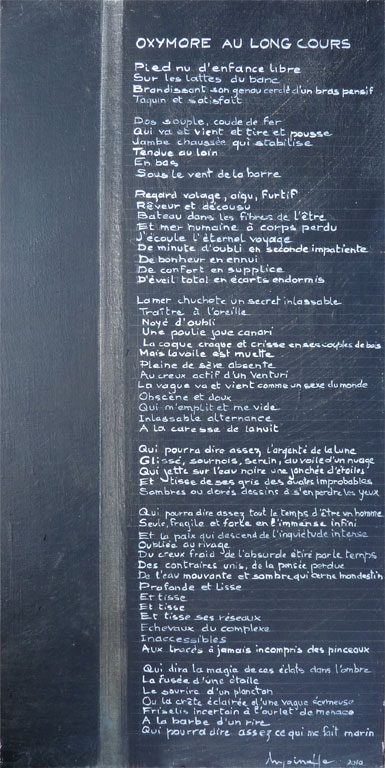 OXYMORE AU LONG COURS
Pied nu d'enfance libre
Sur les lattes du banc
Brandissant son genou cerclé d'un bras pensif
Taquin et satisfait
Dos souple, coude de fer
Qui va et vient et tire et pousse
Jambe chaussée qui stabilise
Tendue au loin
En bas
Sous le vent de la barre
Regard volage, aigu, furtif
Rêveur et décousu
Bateau dans les fibres de l'être
Et mer humaine à corps perdu
J'écoute l'éternel voyage
De minute d'oubli en seconde impatiente
De bonheur en ennui
De confort en supplice
D'éveil total en écarts endormis
La mer chuchote un secret inlassable
Traître à l'oreille
Noyé d'oubli
Une poulie joue canari
La coque craque et crisse en ses couples de bois
Mais la voile est muette
Pleine de sève absente
Au creux actif d'un Venturi
La vague va et vient comme un sexe du monde
Obscène et doux
Qui m'emplit et me vide
Inlassable alternance
A la caresse de la nuit
Qui pourra dire assez l'argenté de la lune
Glissé, sournois, serein, du voile d'un nuage
Qui jette sur l'eau noire une jonchée d'étoiles
Et tisse de ses gris des quatre improbables
Sombres ou dorés dessins à s'en perdre les yeux
Qui pourra dire assez tout le temps d'être un homme
Seule, fragile et forte en l'immense infini
Et la paix qui descend de l'inquiétude intense
Oubliée au rivage
Du creux froid de l'absurde étiré par le temps
Des contraires unis, de la pensée perdue
De l'eau mouvante et sombre qui cerne mon destin
Profonde et lisse
Et tisse
Et tisse
Et tisse ses réseaux
Echevaux du complexe
Inaccessibles
Aux tracés à jamais incompris des pinceaux
Qui dira la magie de ces éclats dans l'ombre
La fusée d'une étoile
Le sourire d'un plancton
Ou la crête éclairée d'une vague écumeuse
Friselis incertain à l'ourlet de menace
A la barbe d'un rire
Qui pourra dire assez ce qui me fait marin